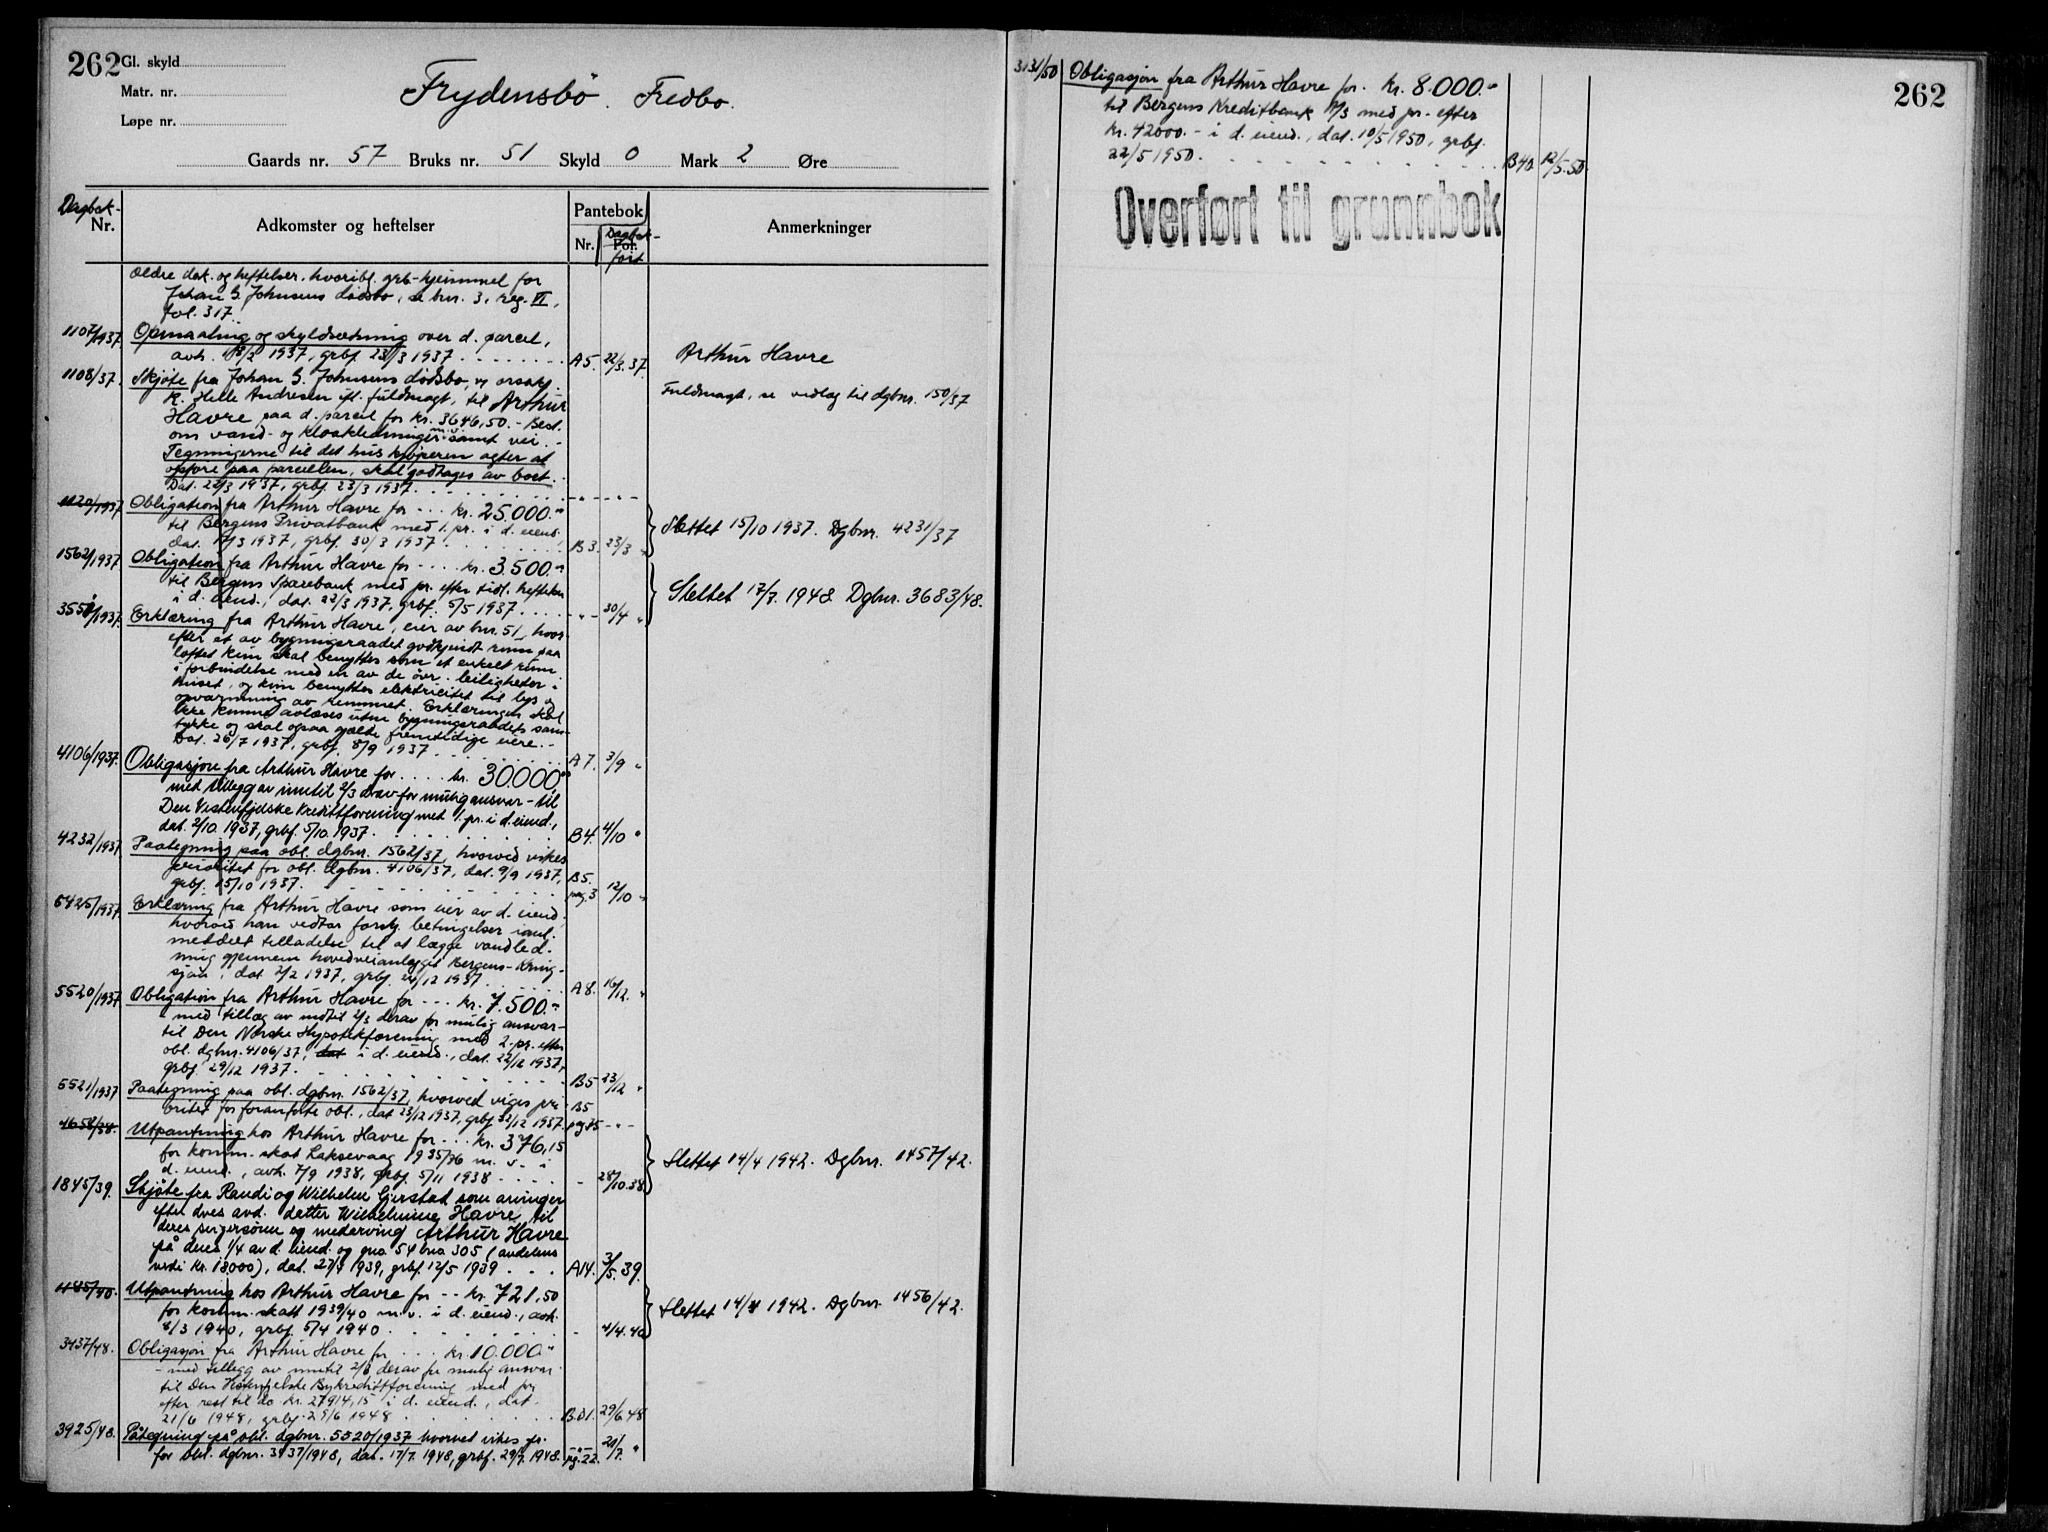 262 Gl. skyld
Matr. nr.
Løpe nr.
Frydensbö. Fredbo.
Gaards nr. 57 Bruks nr. 51 Skyld 0 Mark 2 Øre
Dagbok-
Nr.
Adkomster og heftelser
Pantebok
Nr.
Dagbok-
Fol.
ført
Anmerkninger
Ældre dok. og heftelser, hvoribl. grb-hjemmel for
Johan G. Johnsens dødsbo, se bnr. 3, reg. VI,
fol. 317.
1107/1937. Opmaaling og skyldsætning over d. parcel,
avh. 18/2 1937, grbf. 23/3 1937. A5. 22/3.37. Arthur Havre
1108/37. Skjøte fra Johan G. Johnsens dødsbo, v/ orsakf.
R. Helle Andresen ifl. fuldmagt, til Arthur Fuldmagt, se vedlæg til dgbnr. 150/37
Havre paa d. parcel for kr. 3646,50. - Best.
om vand- og kloakledninger m.v. samt vei. -
Tegningerne til det hus kjøperen agter at
opføre paa parcellen, skal godtages av boet.
Dat. 22/3 1937, grbf. 23/3 1937. - " - - " -
1120/1937. Obligation fra Arthur Havre for ... kr. 25.000.-
til Bergens Privatbank med 1. pr. i d. eiend., Slettet 15/10 1937. Dgbnr. 4231/37
dat. 17/3 1937, grbf. 30/3 1937. B3. 23/3 "
1562/1937. Obligation fra Arthur Havre for .... kr. 3.500.-
til Bergens Sparebank med pr. efter tidl. heftelser
i d. eiend., dat. 22/3 1937, grbf. 5/5 1937. - " - 30/4 " Slettet 17/7. 1948 Dgbnr. 3683/48.
1937. Erklæring fra Arthur Havre, eier av bnr. 51, hvor-
efter et av bygningsraadet godkjendt rum paa
loftet kun skal benyttes som et enkelt rum
i forbindelse med en av de øvr. leiligheder i
huset, og kun benyttes elektricitet til lys og
opvarmning av rummet. Erklæringen skal
ikke kunne avlæses uten bygningsraadets sam-
tykke og skal ogsaa gjælde fremtidige eiere. -
Dat. 26/7 1937, grbf. 8/9 1937. A7. 3/9 "
4106/1937. Obligasjon fra Arthur Havre for .... kr. 30.000.-
med tillegg av inntil 2/3 derav for mulig ansvar - til
Den Vestenfjelske Kredittforening med 1. pr. i d. eiend.,
dat. 2/10 1937, grbf. 5/10 1937. B4. 4/10 "
4232/1937. Paategning paa obl. dgbnr. 1562/37, hvorved vikes
prioritet for obl. dgbnr. 4106/37, dat. 9/9 1937, B5.
grbf. 15/10 1937. pag. 3 12/10 "
5425/1937. Erklæring fra Arthur Havre som eier av d. eiend.
hvorved han vedtar forskj. betingelser i anl.
meddelt tilladelse til at lægge vandled-
ning gjennem hovedveianlægget Bergens-Kring-
sjaa, dat. 2/2 1937, grbf. 21/12 1937. A8. 16/12. "
5520/1937. Obligation fra Arthur Havre for .... kr. 7.500.-
- med tillæg av indtil 2/3 derav for mulig ansvar -
til Den Norske Hypotekforening med 2. pr. efter
obl. dgbnr. 4106/37, dat i d. eiend., dat. 22/12 1937,
grbf. 29/12 1937. B5 23/12 "
5521/1937 Paategning paa obl. dgbnr. 1562/37, hvorved viges pri-
oritet for foranførte obl., dat. 23/12 1937, grbf. 1937. B5 - " -
4658/38. Utpantning hos Arthur Havre for ... kr. 376,15
for komm. skat Laksevaag 1935/36 m. v. i
d. eiend., avh. 7/9 1938, grbf. 5/11 1938. - 28/10.38. Slettet 14/4 1942. Dgbnr. 1457/42.
1845/39. Skjøte fra Randi og Wilhelm Gjerstad som arvinger
efter dres avd. datter Wilhelmine Havre til
deres svigersønn og medarving Arthur Havre
på deres 1/4 av d. eiend. og gno 54 bno 305 (andelens
verdi kr. 13000), dat. 1939, grbf. 12/5 1939. A14. 3/5. 39.
1185/40. Utpantning hos Arthur Havre for -- kr. 721,50
for komm. skatt 1939/40 m. v. i d. eiend., avh. Slettet 14/4 1942. Dgbnr. 1456/42.
8/3 1940, grbf. 5/4 1940. - 4/4.40
3437/48. Obligasjon fra Arthur Havre for ... kr. 10.000.-
- med tillegg av inntil 2/3 derav for mulig ansvar
til Den Vestenfjelske Bykredittforening med pr.
efter rest til do kr. 27914,15 i d. eiend., dat.
21/6 1948, grbf. 29/6 1948. 29/6.48
3925/48. Påtegning på obl. dgbnr. 5520/1937 hvorved vikes pr. - " -
for obl. dgbnr. 3437/1948, dat. 17/7. 1948, grbf. 29/7. 1948. pg. 22. 20/7. "
3131/50 Obligasjon fra Arthur Havre for. kr. 8.000.-
til Bergens Kreditbank A/S med pr. efter
kr. 42000.- i d. eiend., dat. 10/5 1950, grbf.
22/5 1950. B40. 12/5.50.
262
Overført til grunnbok